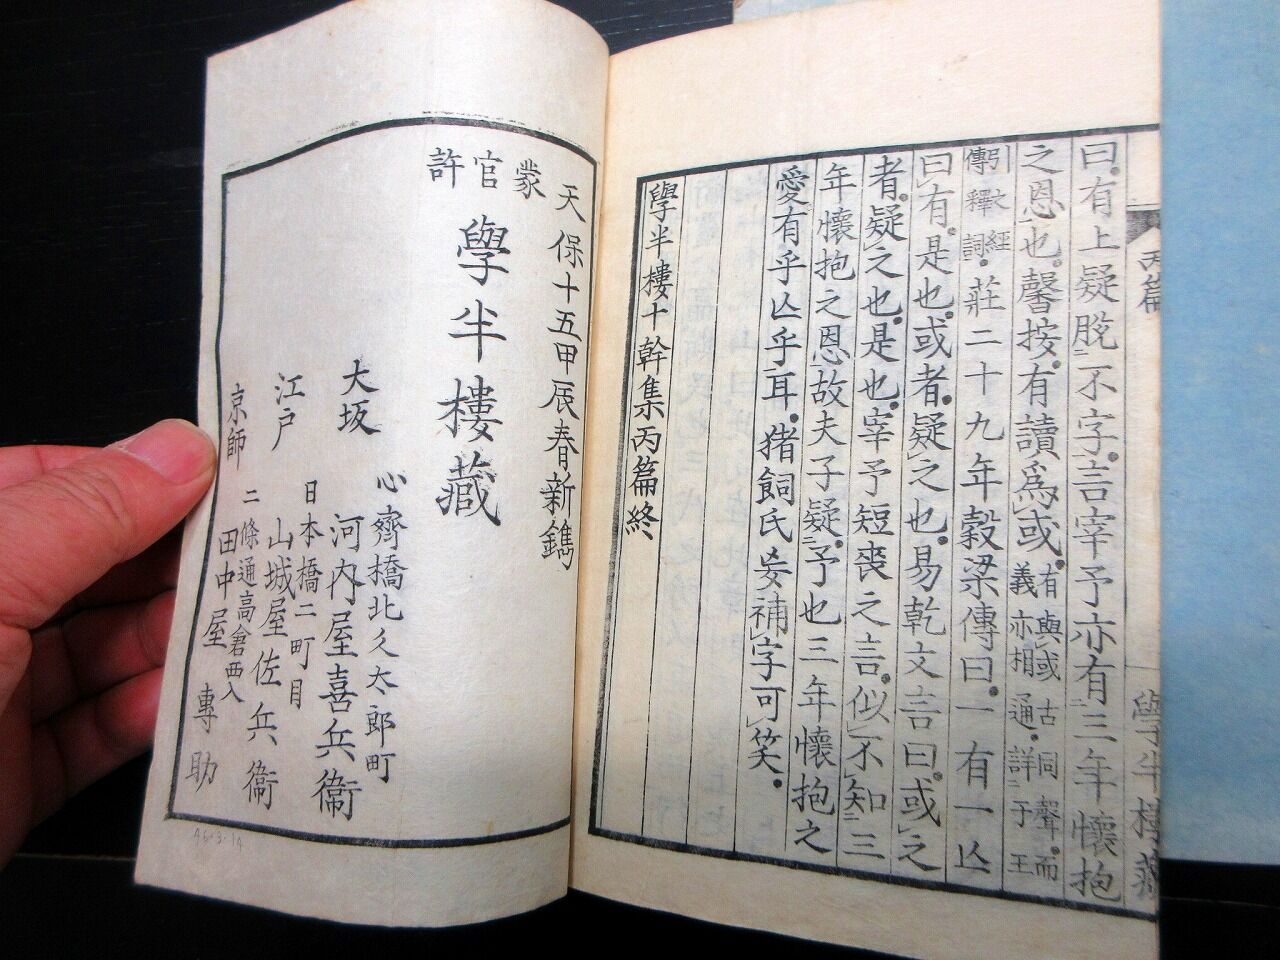 丙篇
學半樓藏
曰有上疑脫不字言宰予亦有三年懷抱
之恩也馨按有讀爲或有與或古同聲而義亦相通詳于王
引之經傳釋詞莊二十九年穀梁傳曰一有一亾
曰有是也或者疑之也易乾文言曰或之
者疑之也是也宰予短喪之言似不知三
年懷抱之恩故夫子疑予也三年懷抱之
愛有乎亾乎耳猪飼氏妄補字可笑
學半樓十幹集丙篇終
天保十五甲辰春新鐫
蒙官許
學半樓藏
大坂
心齋橋北久太郎町
河内屋喜兵衞
江戸
日本橋二町目
山城屋佐兵衞
京師
二條通高倉西入
田中屋專助